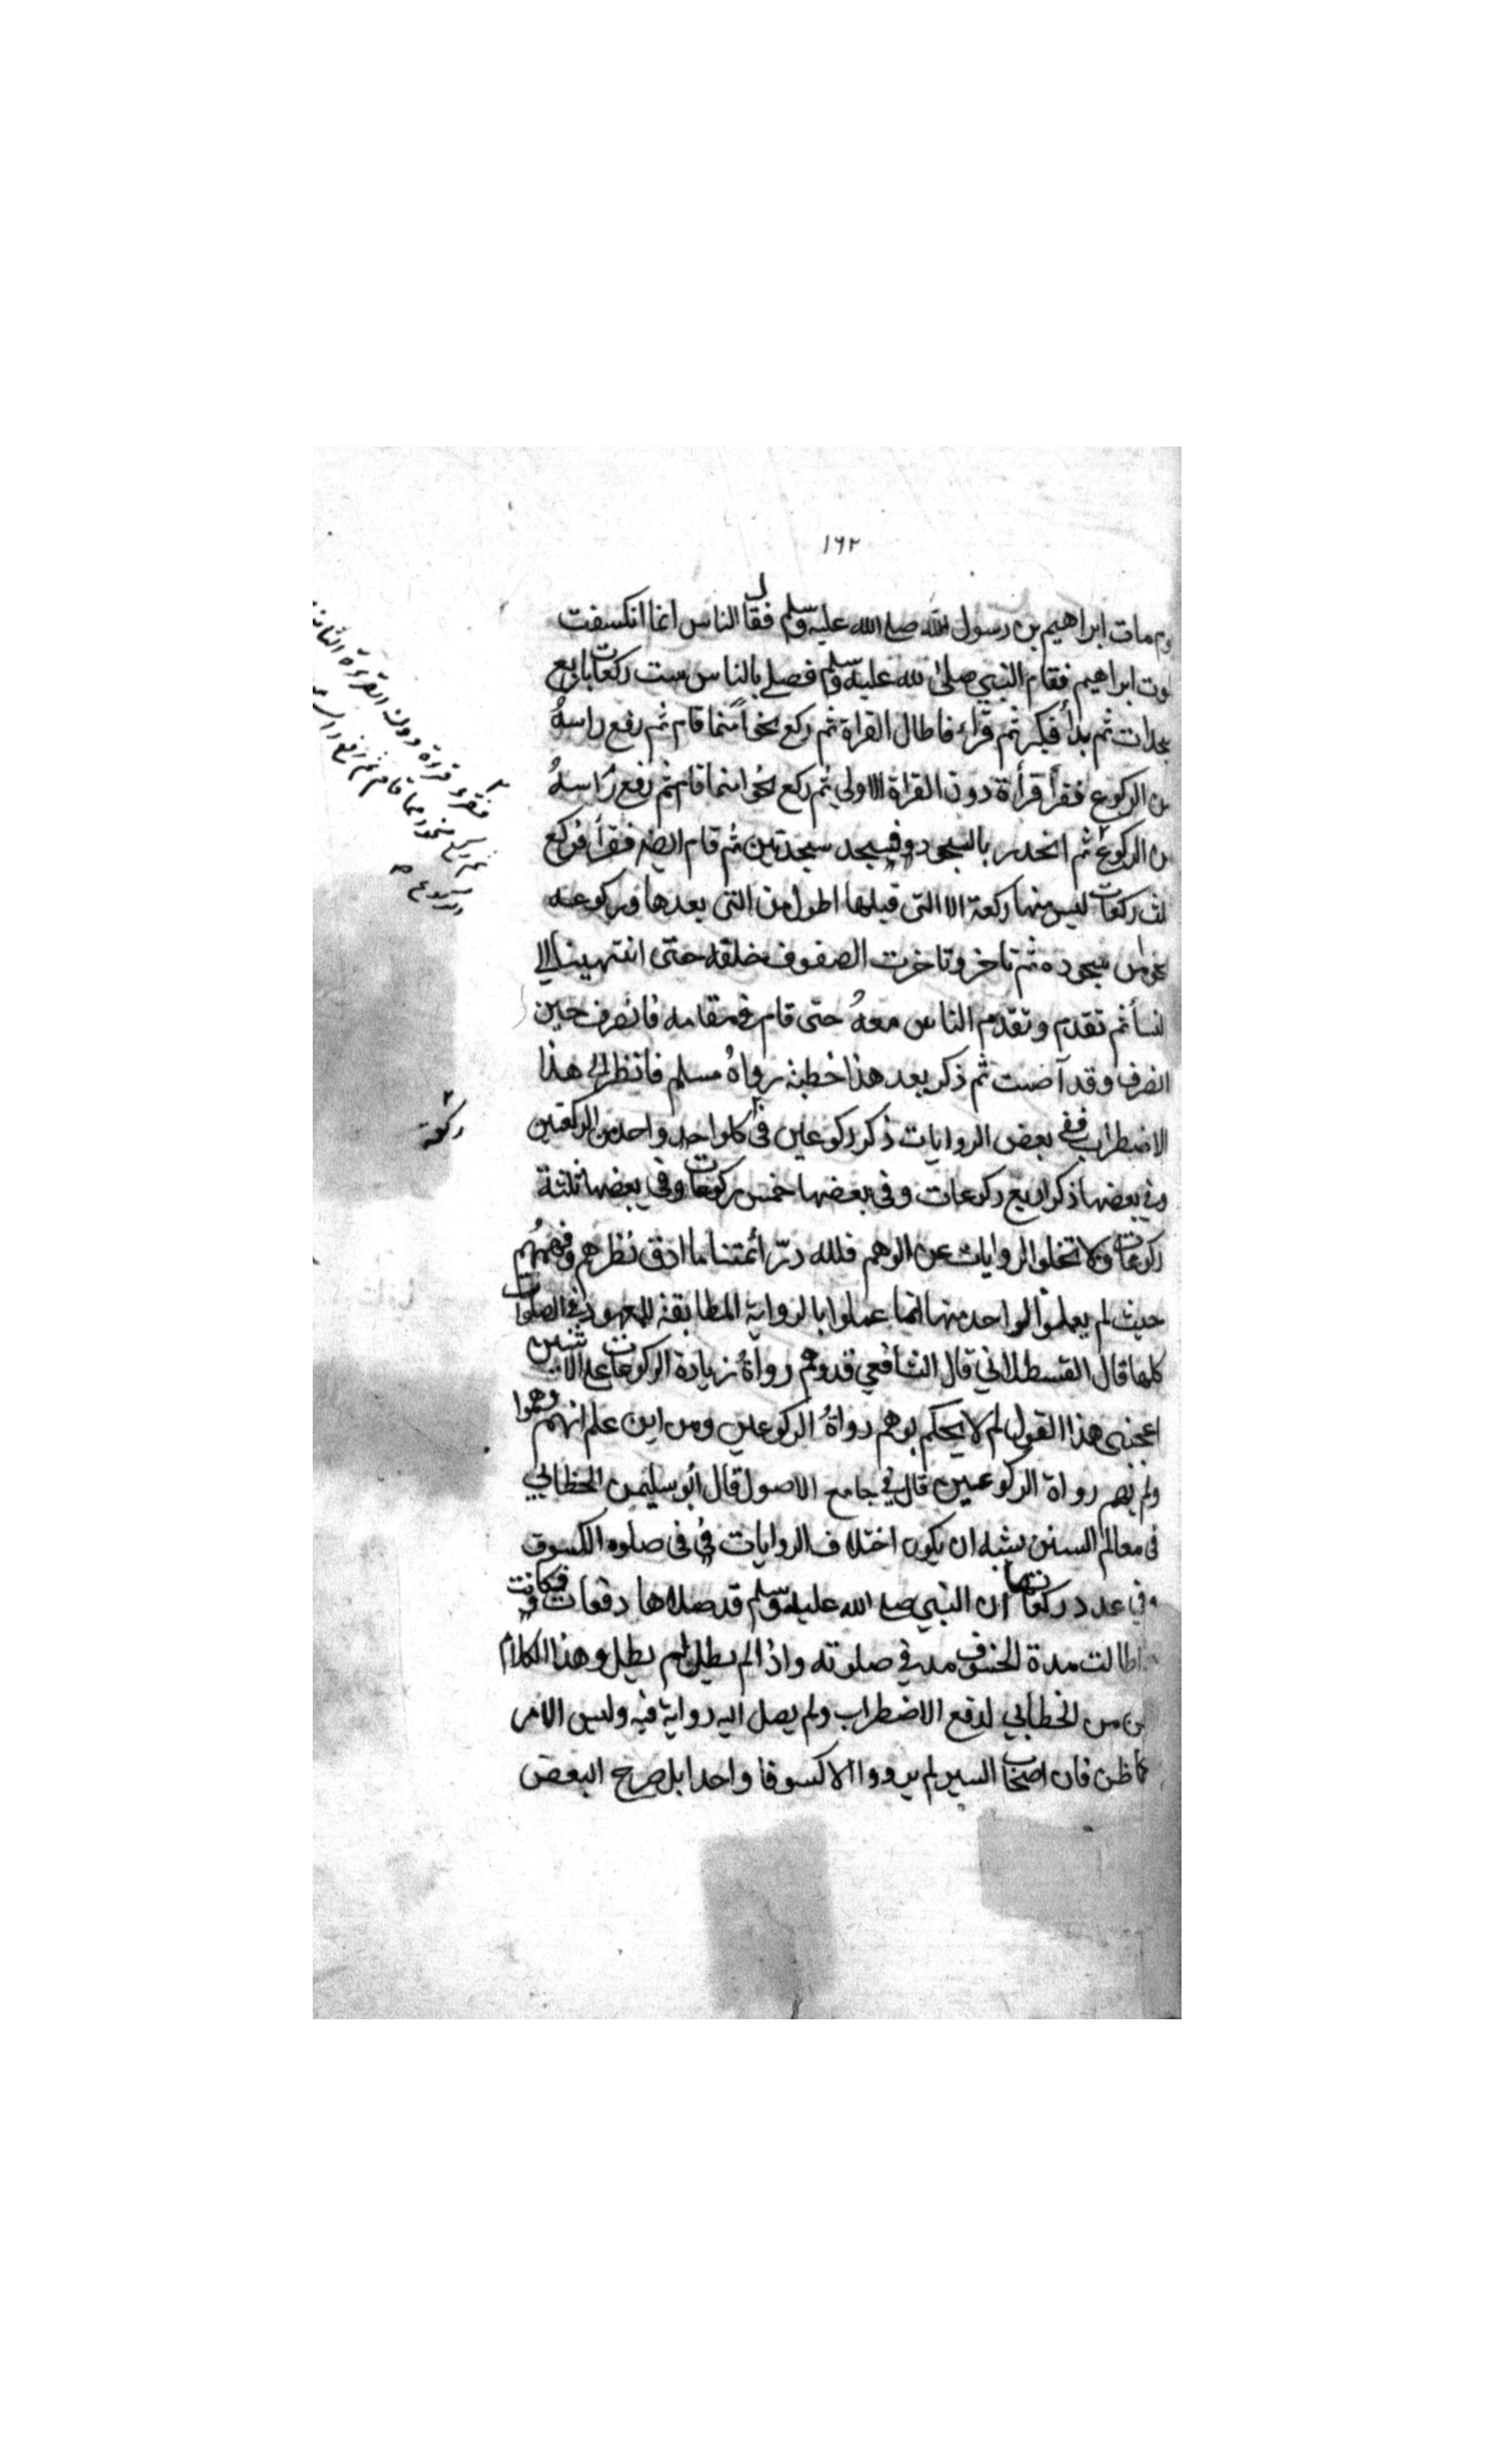 ١٦٢
مات ابراهيم بن رسول الله صلى الله عليه وسلم فقال الناس انما انكسفت
ابراهيم فقام النبي صلى الله عليه وسلم فصلى بالناس ست ركعات باربع
ثم بدأ فكبر ثم قراء فاطال القراة ثم ركع نحوا مما قام ثم رفع راسهُ
الركوع فقرأ قرأة دون القراة الاولى ثم ركع نحوا مما قام ثم رفع راسهُ
الركوع ثم انحدر بالسجود فسجد سجدتين ثم قام ايضا فقرأ فركع
ركعات ليس منها ركعة الا التى قبلها اطول من التى بعدها وركوعه
سجوده ثم تاخر وتاخرت الصفوف خلفه حتى انتهينا الى
ثم تقدم وتقدم الناس معهُ حتى قام في مقامه فانصرف حين
انصرف وقد آضت ثم ذكر بعد هذا خطبة رواهُ مسلم فانظر الى هذا
الاضطراب ففى بعض الروايات ذكر ركوعين فى كل واحد واحد من الركعتين
وفي بعضها ذكر اربع ركوعات وفى بعضها خمس ركوعات وفى بعضها ثلثة
ركوعات ولا تخلوا الروايات عن الوهم فلله درّ أئمتنا ما ادق نظرهم وفهمهم
حيث لم يعملوا لواحد منها انما عملوا بالرواية المطابقة للمعهود في الصلوات
كلها قال القسطلاني قال الشافعي قد وهم رواةُ زيادة الركوعات على الاثنين
اعجبنى هذا القول لم لا يحكم بوهم رواةُ الركوعين ومن اين علم انهم وهموا
ولم يهم رواة الركوعين قال في جامع الاصول قال أبو سليمن الخطابي
فى معالم السنن يشبه ان يكون اختلاف الروايات في فى صلوة الكسوف
وفي عدد ركعاتها ان النبي صلى الله عليه وسلم قد صلاها دفعات فكانت
اطالت مدة الخسوف مد في صلوته واذا لم يطل لم يطل وهذا الكلام
من الخطابي لدفع الاضطراب ولم يصل اليه رواية فيه وليس الامر
كما ظن فان اصحاب السير لم يرووا الا كسوفا واحدا بل صرح البعض
فقرء قراءة دون القراءة الثانية
ثم ركع نحوا مما قام ثم رفع راسه
ركعة